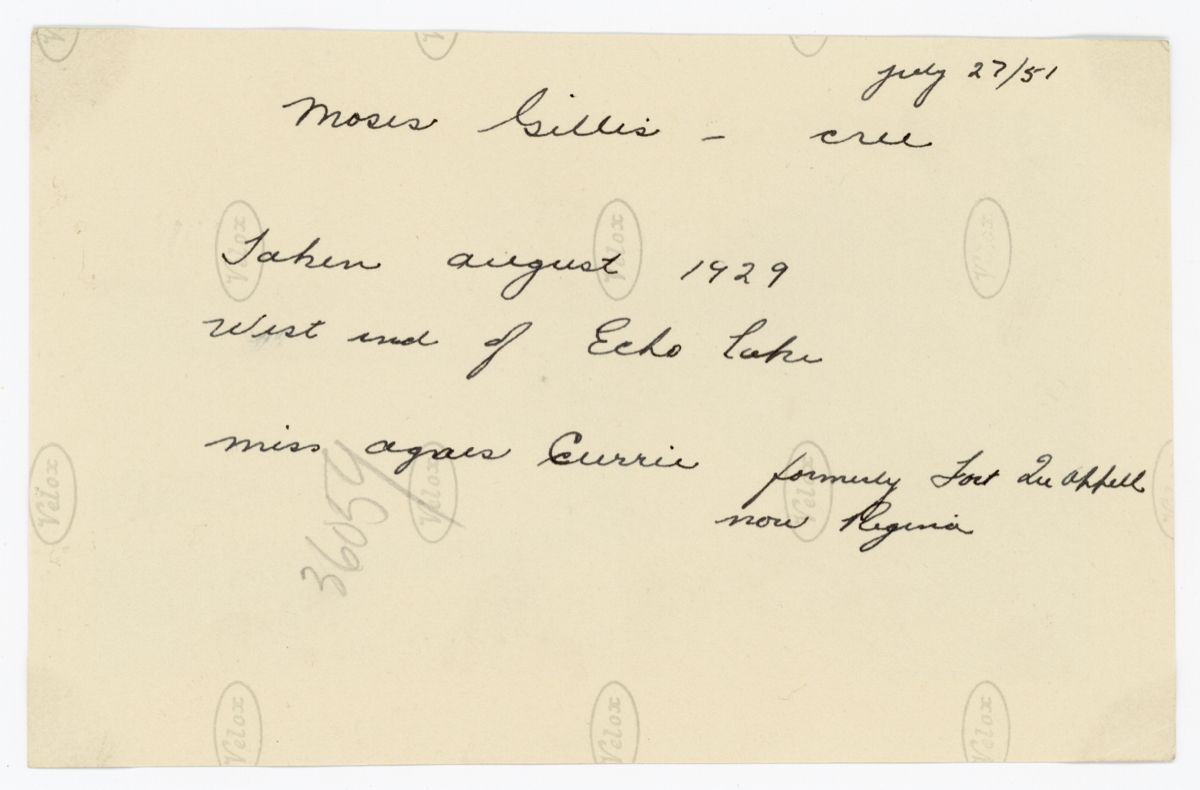 July 27/51
Moses Gillis - Cree
Taken August 1929
West end of Echo Lake
Miss Agnes Currie
formerly Fort Qu Appell
now Regina
36054/
Velox
Velox
Velox
Velox
Velox
Velox
Velox
Velox
Velox